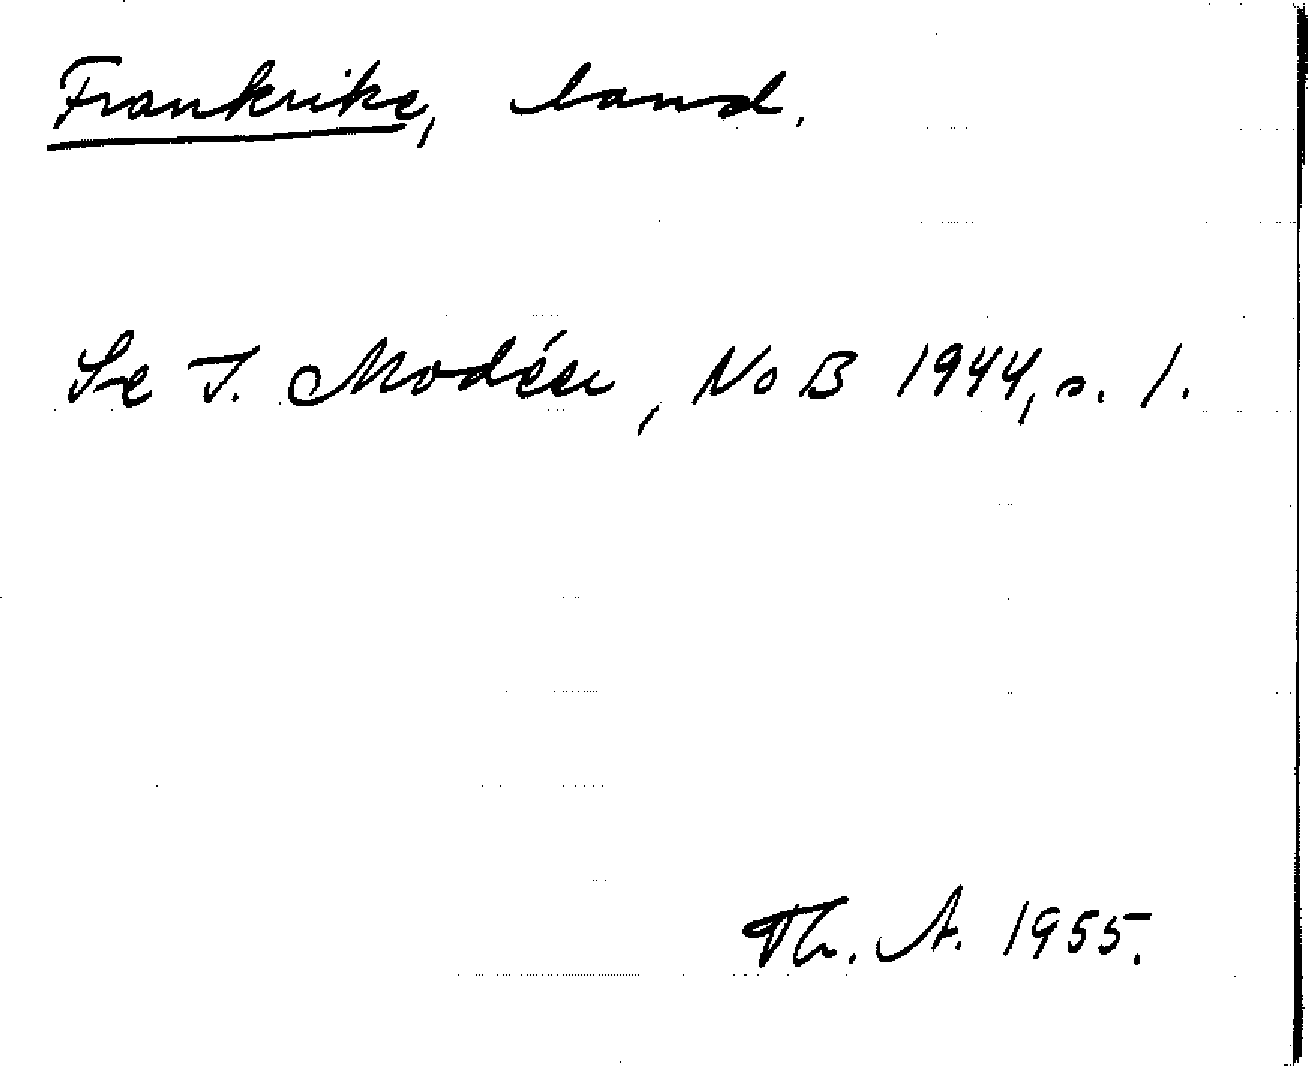 Frankrike, land.
Se I. Modéer, NoB 1944, s. 1.
Th. A. 1955.